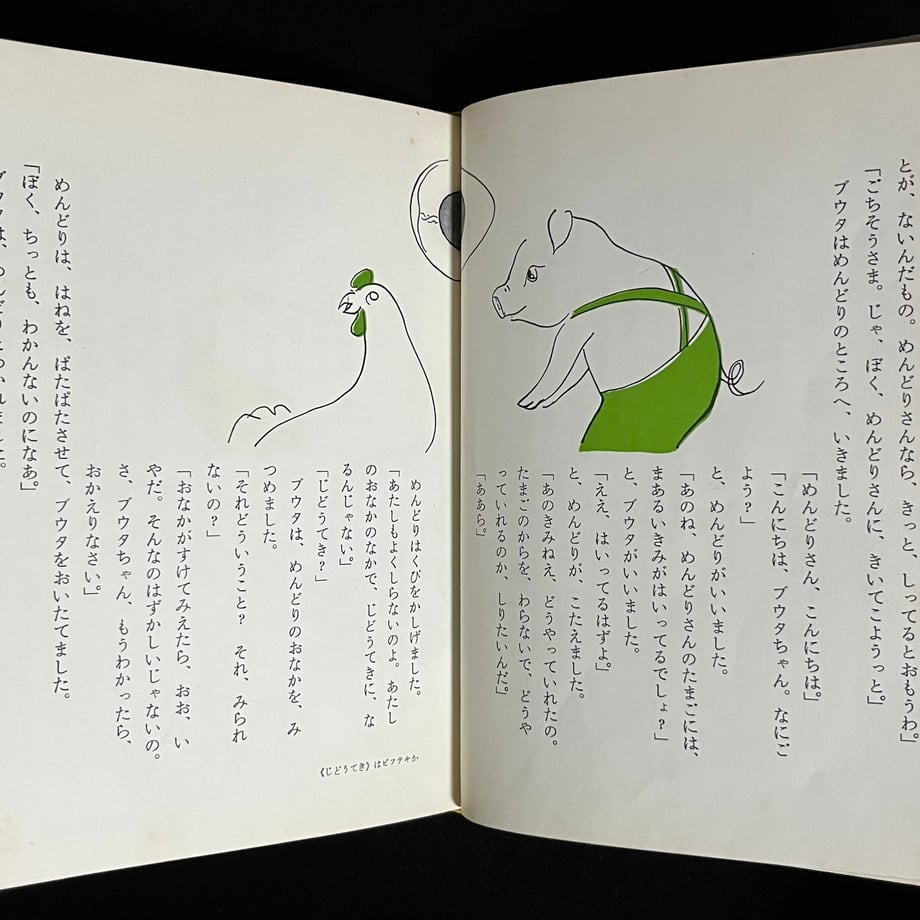 とが、ないんだもの。めんどりさんなら、きっと、しってるとおもうわ。」
「ごちそうさま。じゃ、ぼく、めんどりさんに、きいてこようっと。」
ブウタはめんどりのところへ、いきました。
「めんどりさん、こんにちは。」
「こんにちは、ブウタちゃん。なにご
よう？」
と、めんどりがいいました。
「あのね、めんどりさんのたまごには、
まあるいきみがはいってるでしょ？」
と、ブウタがいいました。
「ええ、はいってるはずよ。」
と、めんどりが、こたえました。
「あのきみねえ、どうやっていれたの。
たまごのからを、わらないで、どうや
っていれるのか、しりたいんだ。」
「ああら。」
めんどりはくびをかしげました。
「あたしもよくしらないのよ。あたし
のおなかのなかで、じどうてきに、な
るんじゃない。」
「じどうてき？」
ブウタは、めんどりのおなかを、み
つめました。
「それどういうこと？　それ、みられ
ないの？」
「おなかがすけてみえたら、おお、い
やだ。そんなのはずかしいじゃないの。
さ、ブウタちゃん、もうわかったら、
おかえりなさい。」
めんどりは、はねを、ぱたぱたさせて、ブウタをおいたてました。
「ぼく、ちっとも、わかんないのになあ。」
《じどうてき》はビフテキか